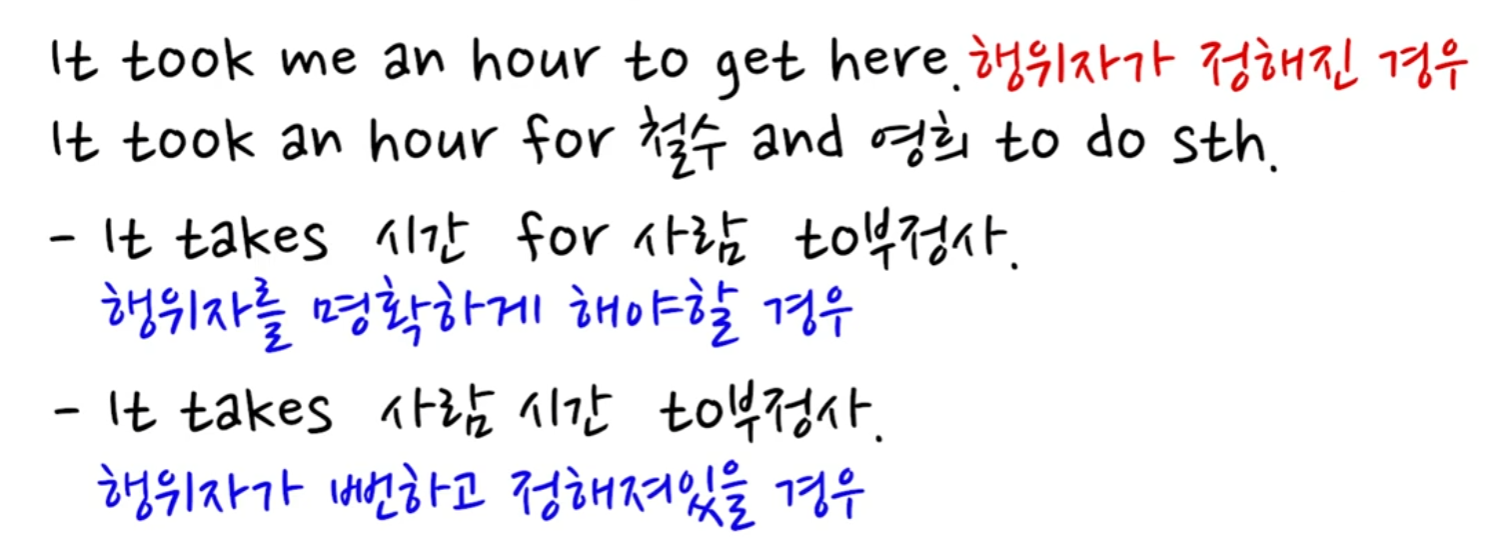 It took me an hour to get here. 행위자가 정해진 경우
It took an hour for 철수 and 영희 to do sth.
- It takes 시간 for 사람 to부정사.
행위자를 명확하게 해야할 경우
- It takes 사람 시간 to부정사.
행위자가 뻔하고 정해져있을 경우